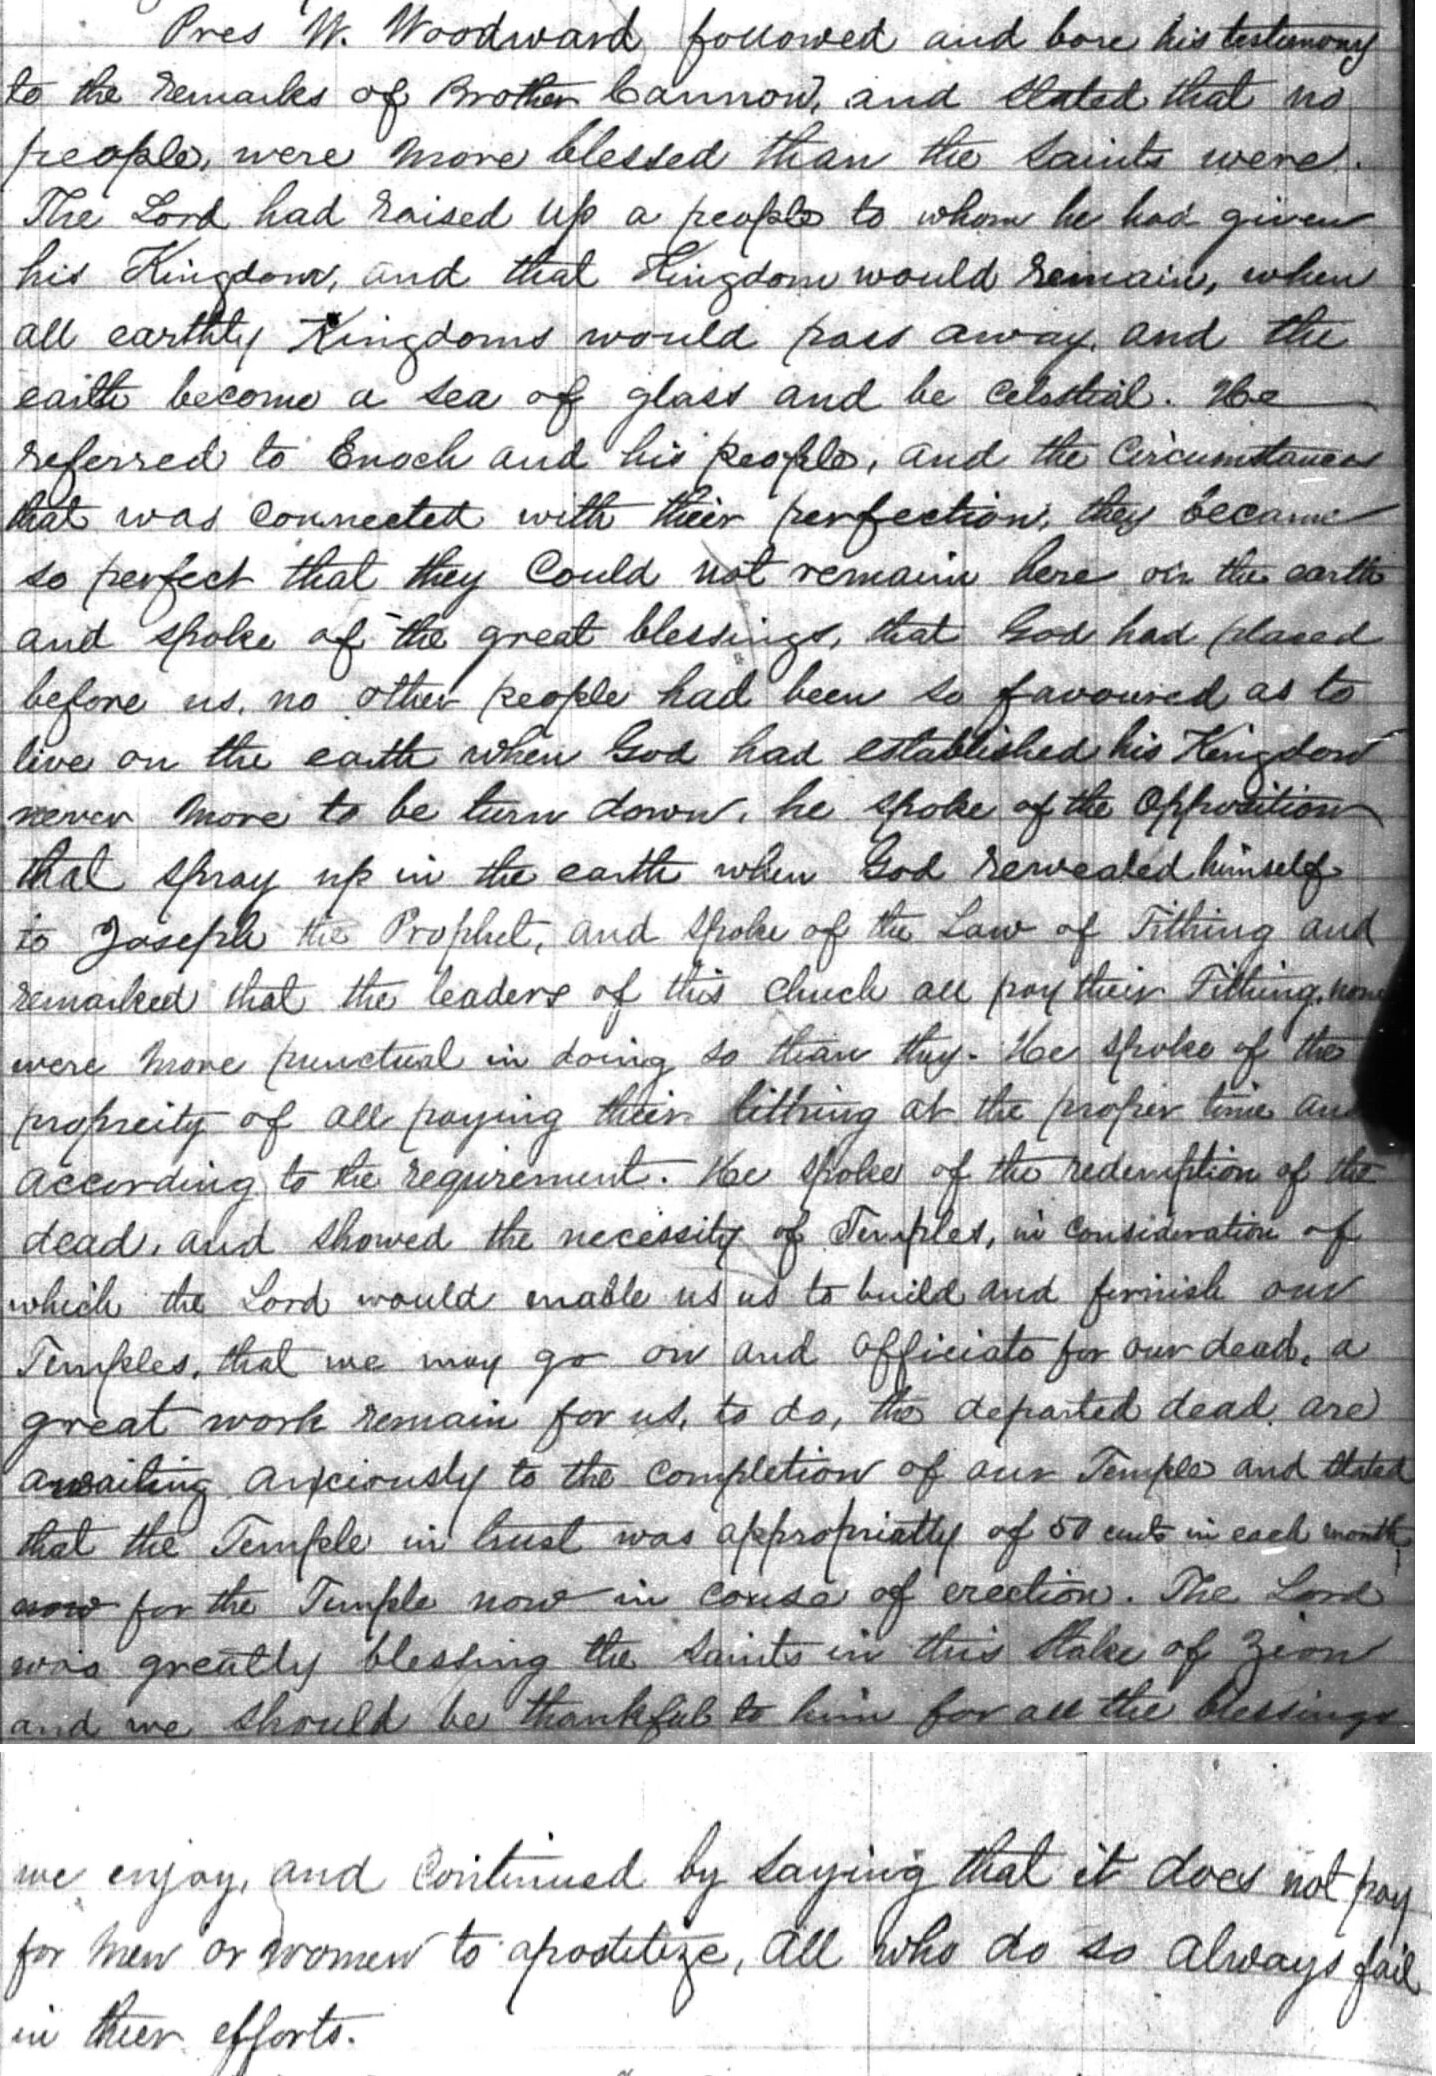 Pres W. Woodward followed and bore his testimony
to the remarks of Brother Cannon, and stated that no
people, were more blessed than the Saints were.
The Lord had raised up a people to whom he had given
his Kingdom, and that Kingdom would remain, when
all earthly Kingdoms would pass away, and the
earth become a sea of glass and be celestial. He
referred to Enoch and his people, and the Circumstances
that was connected with their perfection, they became
so perfect that they Could not remain here on the earth
and spoke of the great blessings, that God had placed
before us, no other people had been so favoured as to
live on the earth when God had established his Kingdom
never more to be turn down, he spoke of the Opposition
that spray up in the earth when God revealed himself
to Joseph the Prophet, and spoke of the Law of Tithing and
remarked that the leaders of this Chuch all pay their Tithing, none
were more punctual in doing so than they. He spoke of the
propreity of all paying their tithing at the proper time and
according to the requirement. He spoke of the redemption of the
dead, and showed the necessity of Temples, in consideration of
which the Lord would enable us us to build and furnish our
Temples, that we may go on and officiate for our dead, a
great work remain for us, to do, the departed dead are
awaiting anxiously to the completion of our Temple and stated
that the Temple in trust was appropriatly of 50 cents in each month
now for the Temple now in couse of erection. The Lord
was greatly blessing the Saints in this Stake of Zion
and we should be thankful to him for all the blessings
we enjoy, and Continued by saying that it does not pay
for men or women to apostitize, all who do so always fail
in their efforts.